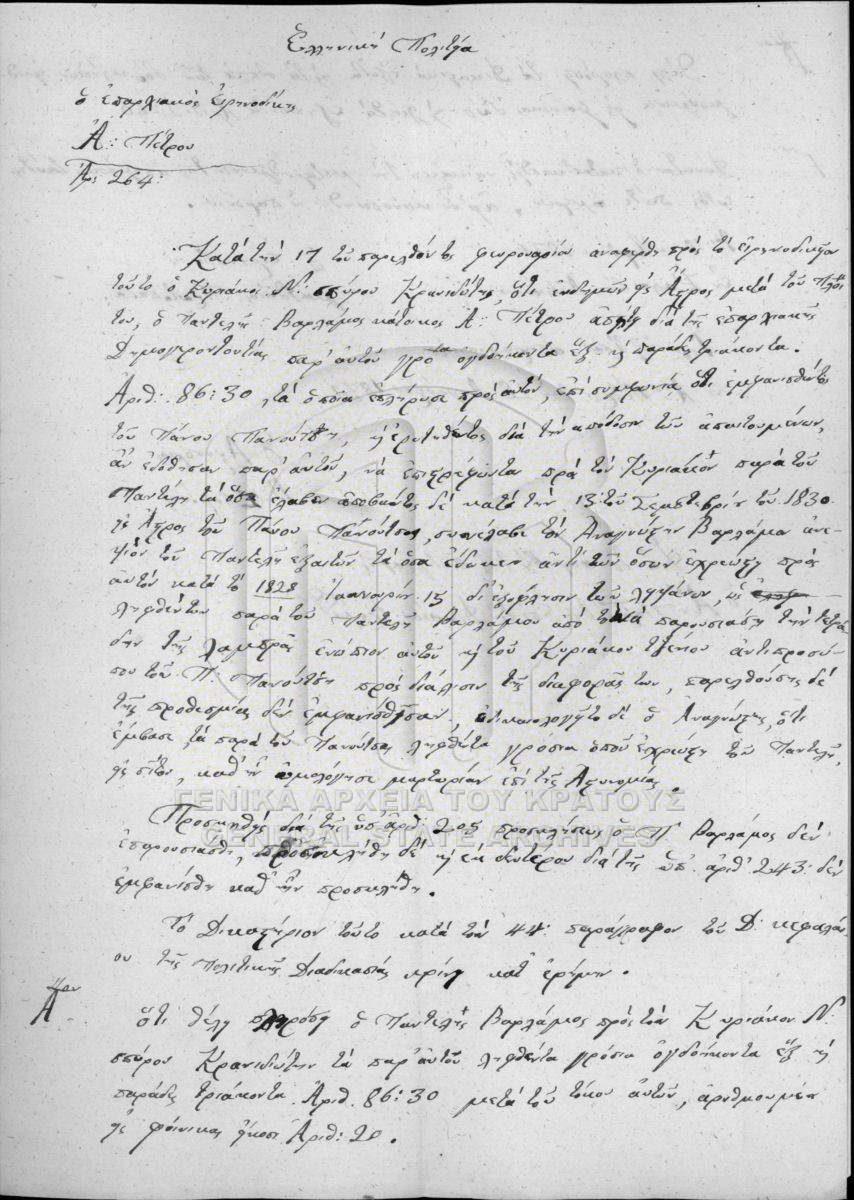 Ἑλληνική Πολιτεία
ὁ ἐπαρχιακός Εἰρηνοδίκης
Ἁ: Πέτρου
Ἀρ: 264:
Κατά την 17 τοῦ παρελθόντος φευρουαρίου ἀναφέρθη πρός τό εἰρηνοδικεῖον
τοῦτο ὁ Κυριάκος Ν: σπύρου Κρανιδιώτης, ὅτι ἐνδημῶν εἰς Ἄστρος μετά τοῦ πλοί
του, ὁ Παντελῆς Βαρλάμος κάτοικος Ἁ: Πέτρου ἀπῄτει διά τῆς ἐπαρχιακῆς
Δημογεροντουτίας παρ' αὐτοῦ γρόσια ὀγδοήκοντα ἕξ καί παράδες τριάκοντα.
Ἀριθ: 86:30 τά ὁποῖα ἐπλήρωσε πρός αὐτόν, ἐπί συμφωνίᾳ ὅτι ἐμφανισθέντος
τοῦ Πάνου Πανούτζου, καί ἐρωτηθέντος διά την ἀπόδοσιν τῶν ἀπαιτουμένων,
ἄν ἐδόθησαν παρ' αὐτοῦ, νά ἐπιστρέφωνται πρός τόν Κυριάκον παρά τοῦ
Παντελῆ τά ὅσα ἔλαβεν ἀποβάντος δέ κατά την 13 τοῦ Σεμπτεβρίου τοῦ 1830
εἰς Ἄστρος τοῦ Πάνου Πανούτσου, συνέλαβε τόν Ἀναγνώστην Βαρλάμον ἀνε-
ψιόν τοῦ Παντελῆ ἐξαιτῶν τά ὅσα ἔδωκεν ἀντί τῶν ὅσων ἐχρεώστει πρός
αὐτόν κατά τό 1828 Ἰαννουαρίου 15 δι' ἐξόφλησιν τῶν
ληφθέντων παρά τοῦ Παντελῆ Βαρλάμου ἀπό παρουσιάσῃ την τετρά
δην τῆς λαμπρᾶς ἐνώπιον αὐτοῦ καί τοῦ Κυριάκου ἀντιπροσώ-
που τοῦ Π. Πανούτζου πρός διάλυσιν τῆς διαφορᾶς των, παρελθούσης δέ
τῆς προθεσμίας δέν ἐμφανίσθησαν, ἐδικαιολογεῖτο δέ ὁ Ἀναγνώστης, ὅτι
ἔμβασε τά παρά τοῦ Πανούτσου ληφθέντα γρόσια ὁποῦ ἐχρεώστει τοῦ Παντελῆ,
εἰς σῖτον, καθ' ἥν ὡμολόγησε μαρτυρίαν ἐπί τῆς Ἀστυνομίας.
Προσκληθείς διά τῆς ὑπ' ἀρθ: 205 προσκλήσεως ὁ Π Βαρλάμος δέν
ἐπαρουσιάσθη, προσεκλήθη δέ καί ἐκ δευτέρου διά τῆς ὑπ' ἀριθ' 243: δέν
ἐμφανίσθη καθ' ἥν προσεκλήθη.
Τό Δικαστήριον τοῦτο κατά τόν 44: παράγραφον τοῦ Δ: κεφαλαί-
ου τῆς Πολιτικῆς Διαδικασίας κρίνει κατ' ἐρήμην.
Α.ον
ὅτι θέλει πληρώσῃ ὁ Παντελῆς Βαρλάμος πρός τόν Κυριάκον Ν:
σπύρου Κρανιδιώτην τά παρ' αὐτοῦ ληφθέντα γρόσια ὀγδοήκοντα ἕξ καί
παράδες τριάκοντα Ἀριθ. 86:30 μετά τοῦ τόκου αὐτῶν, ἀριθμουμένου
εἰς φοίνικας εἴκοσι Ἀριθ: 20.
ΓΕΝΙΚΑ ΑΡΧΕΙΑ ΤΟΥ ΚΡΑΤΟΥΣ
GENERAL STATE ARCHIVES